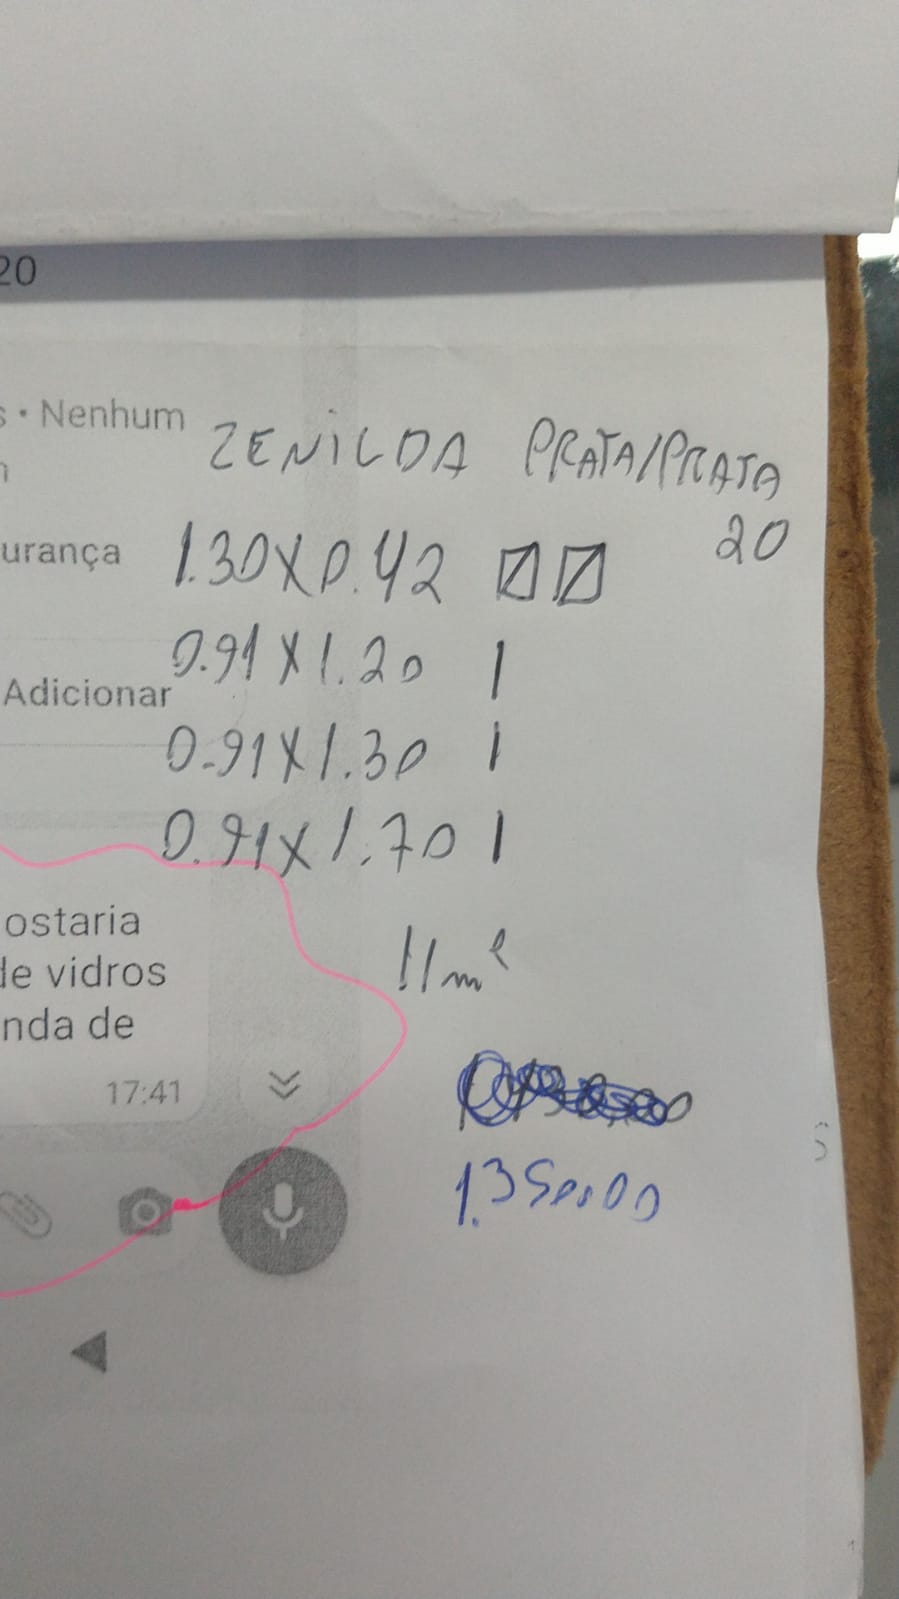 20
s • Nenhum
ZENILDA PRATA/PRATA
20
urança
1.30X0.42
0.91X1.20 1
Adicionar
0.91X1.30 1
0.91X1.70 1
ostaria
de vidros
nda de
11m²
17:41
1.350,00